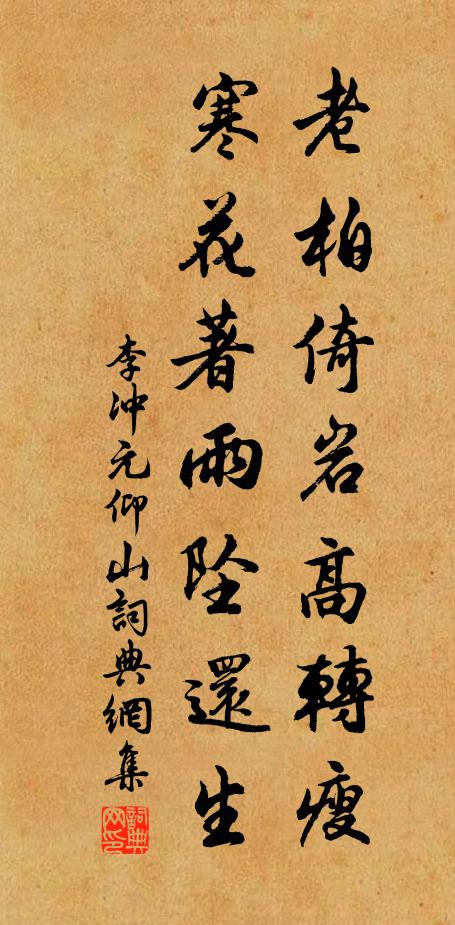 老柏倚岩高轉瘦
寒花著雨墜還生
李沖元仰山詞典網集
詞典网印